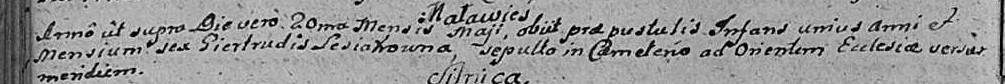 Maławieś
Annô ût supra Die vero 20ma Mensis Maji, obiit præ pustulis Infans unius Anni et
Mensium sex Giertrudis Lesiakowna, sepulta in Cæmeterio ad Orientem Ecclesiæ versus
meridiem.
Silnica.